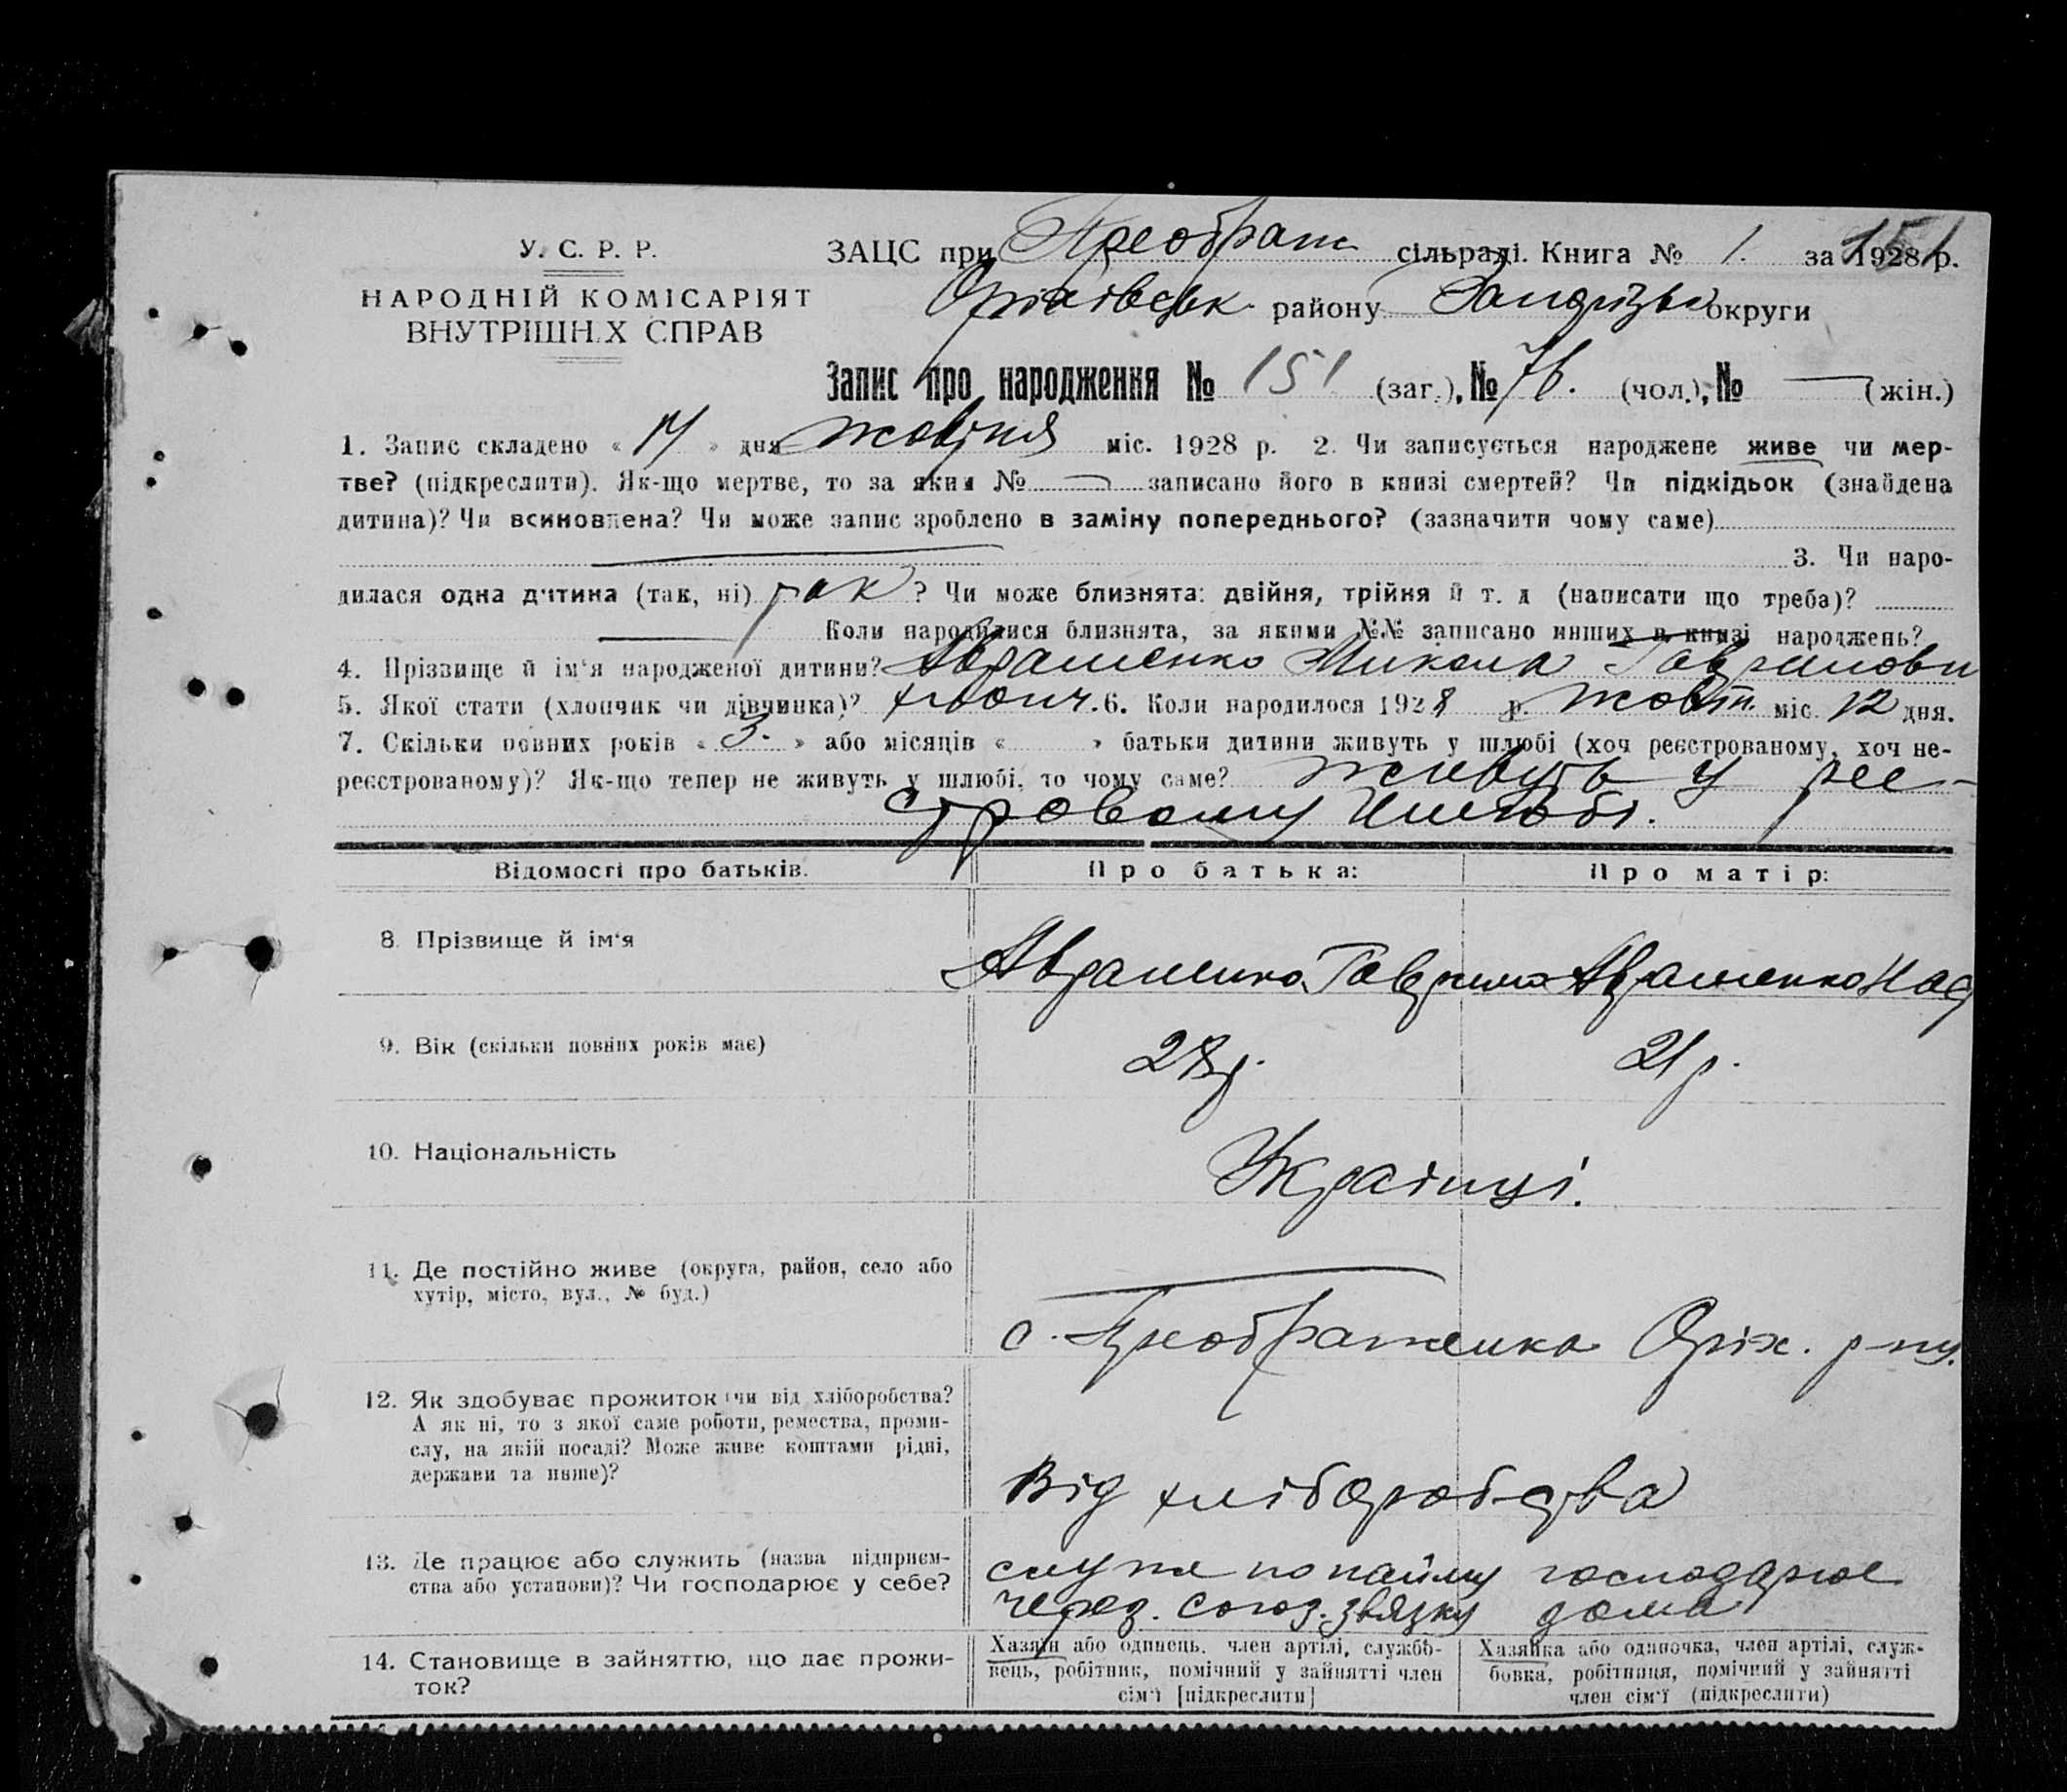 У. С. Р. Р.
НАРОДНІЙ КОМІСАРІЯТ
ВНУТРІШН.Х СПРАВ
ЗАЦС при Преображ сільраді. Книга № 1. за 1928 р.
151
Оріхівськ району Запорізьк округи
Запис про народження № 151 (заг.), № 76. (чол.), № — (жін.)
1. Запис складено « 17 » дня жовтня міс. 1928 р. 2. Чи записується народжене живе чи мер-
тве? (підкреслити). Як-що мертве, то за яким № — записано його в книзі смертей? Чи підкідьок (знайдена
дитина)? Чи всиновлена? Чи може запис зроблено в заміну попереднього? (зазначити чому саме)
— 3. Чи наро-
дилася одна дитина (так, ні) так ? Чи може близнята: двійня, трійня й т. д (написати що треба)?
— Коли народилися близнята, за якими №№ записано инших в книзі народжень?
4. Прізвище й ім'я народженої дитини? Авраменко Микола Гаврилови
5. Якої стати (хлопчик чи дівчинка)? хлопч. 6. Коли народилося 1928 р. жовтн. міс. 12 дня.
7. Скільки повних років « 3. » або місяців « » батьки дитини живуть у шлюбі (хоч реєстрованому, хоч не-
реєстрованому)? Як-що тепер не живуть у шлюбі, то чому саме? живуть у рее-
стровому шлюбі.
Відомості про батьків. Про батька: Про матір:
8. Прізвище й ім'я Авраменко Гаврило Авраменко Нас
9. Вік (скільки повних років має) 28 р. 21 р.
10. Національність Українці.
11. Де постійно живе (округа, район, село або
хутір, місто, вул., № буд.)
с. Преображенка Оріх. р-ну.
12. Як здобуває прожиток (чи від хліборобства?
А як ні, то з якої саме роботи, ремества, проми-
слу, на якій посаді? Може живе коштами рідні,
держави та инше)?
Від хліборобства
13. Де працює або служить (назва підприєм-
ства або установи)? Чи господарює у себе?
служе по найму господарює
через. союз. звязку дома
14. Становище в зайняттю, що дає прожи-
ток?
Хазяїн або одинець, член артілі, службо-
вець, робітник, помічний у зайнятті член
сім'ї [підкреслити]
Хазяйка або одиночка, член артілі, служ-
бовка, робітниця, помічний у зайнятті
член сім'ї (підкреслити)